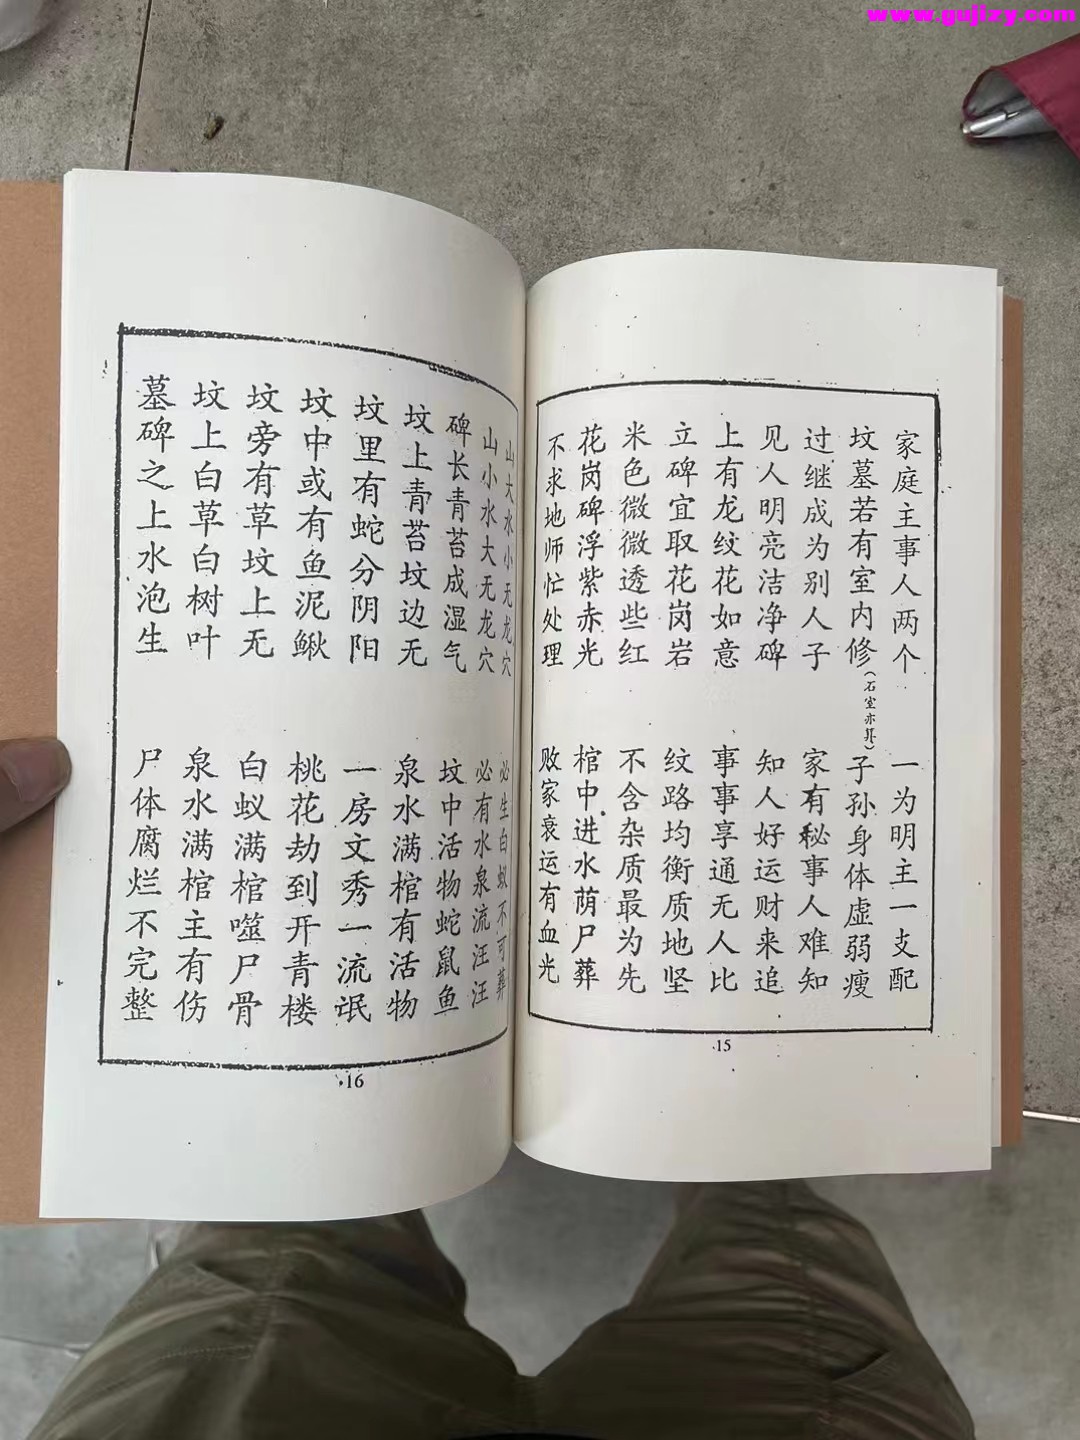 www.gujizy.com
家庭主事人两个 一为明主一支配
坟墓若有室内修(石室亦算) 子孙身体虚弱瘦
过继成为别人子 家有秘事人难知
见人明亮洁净碑 知人好运财来追
上有龙纹花如意 事事享通无人比
立碑宜取花岗岩 纹路均衡质地坚
米色微微透些红 不含杂质最为先
花岗碑浮紫赤光 棺中进水荫尸葬
不求地师忙处理 败家衰运有血光
15
山大水小无龙穴 必生白蚁不可葬
山小水大无龙穴 必有水泉流汪汪
碑长青苔成湿气 坟中活物蛇鼠鱼
坟上青苔坟边无 泉水满棺有活物
坟里有蛇分阴阳 一房文秀一流氓
坟中或有鱼泥鳅 桃花劫到开青楼
坟旁有草坟上无 白蚁满棺噬尸骨
坟上白草白树叶 泉水满棺主有伤
墓碑之上水泡生 尸体腐烂不完整
16